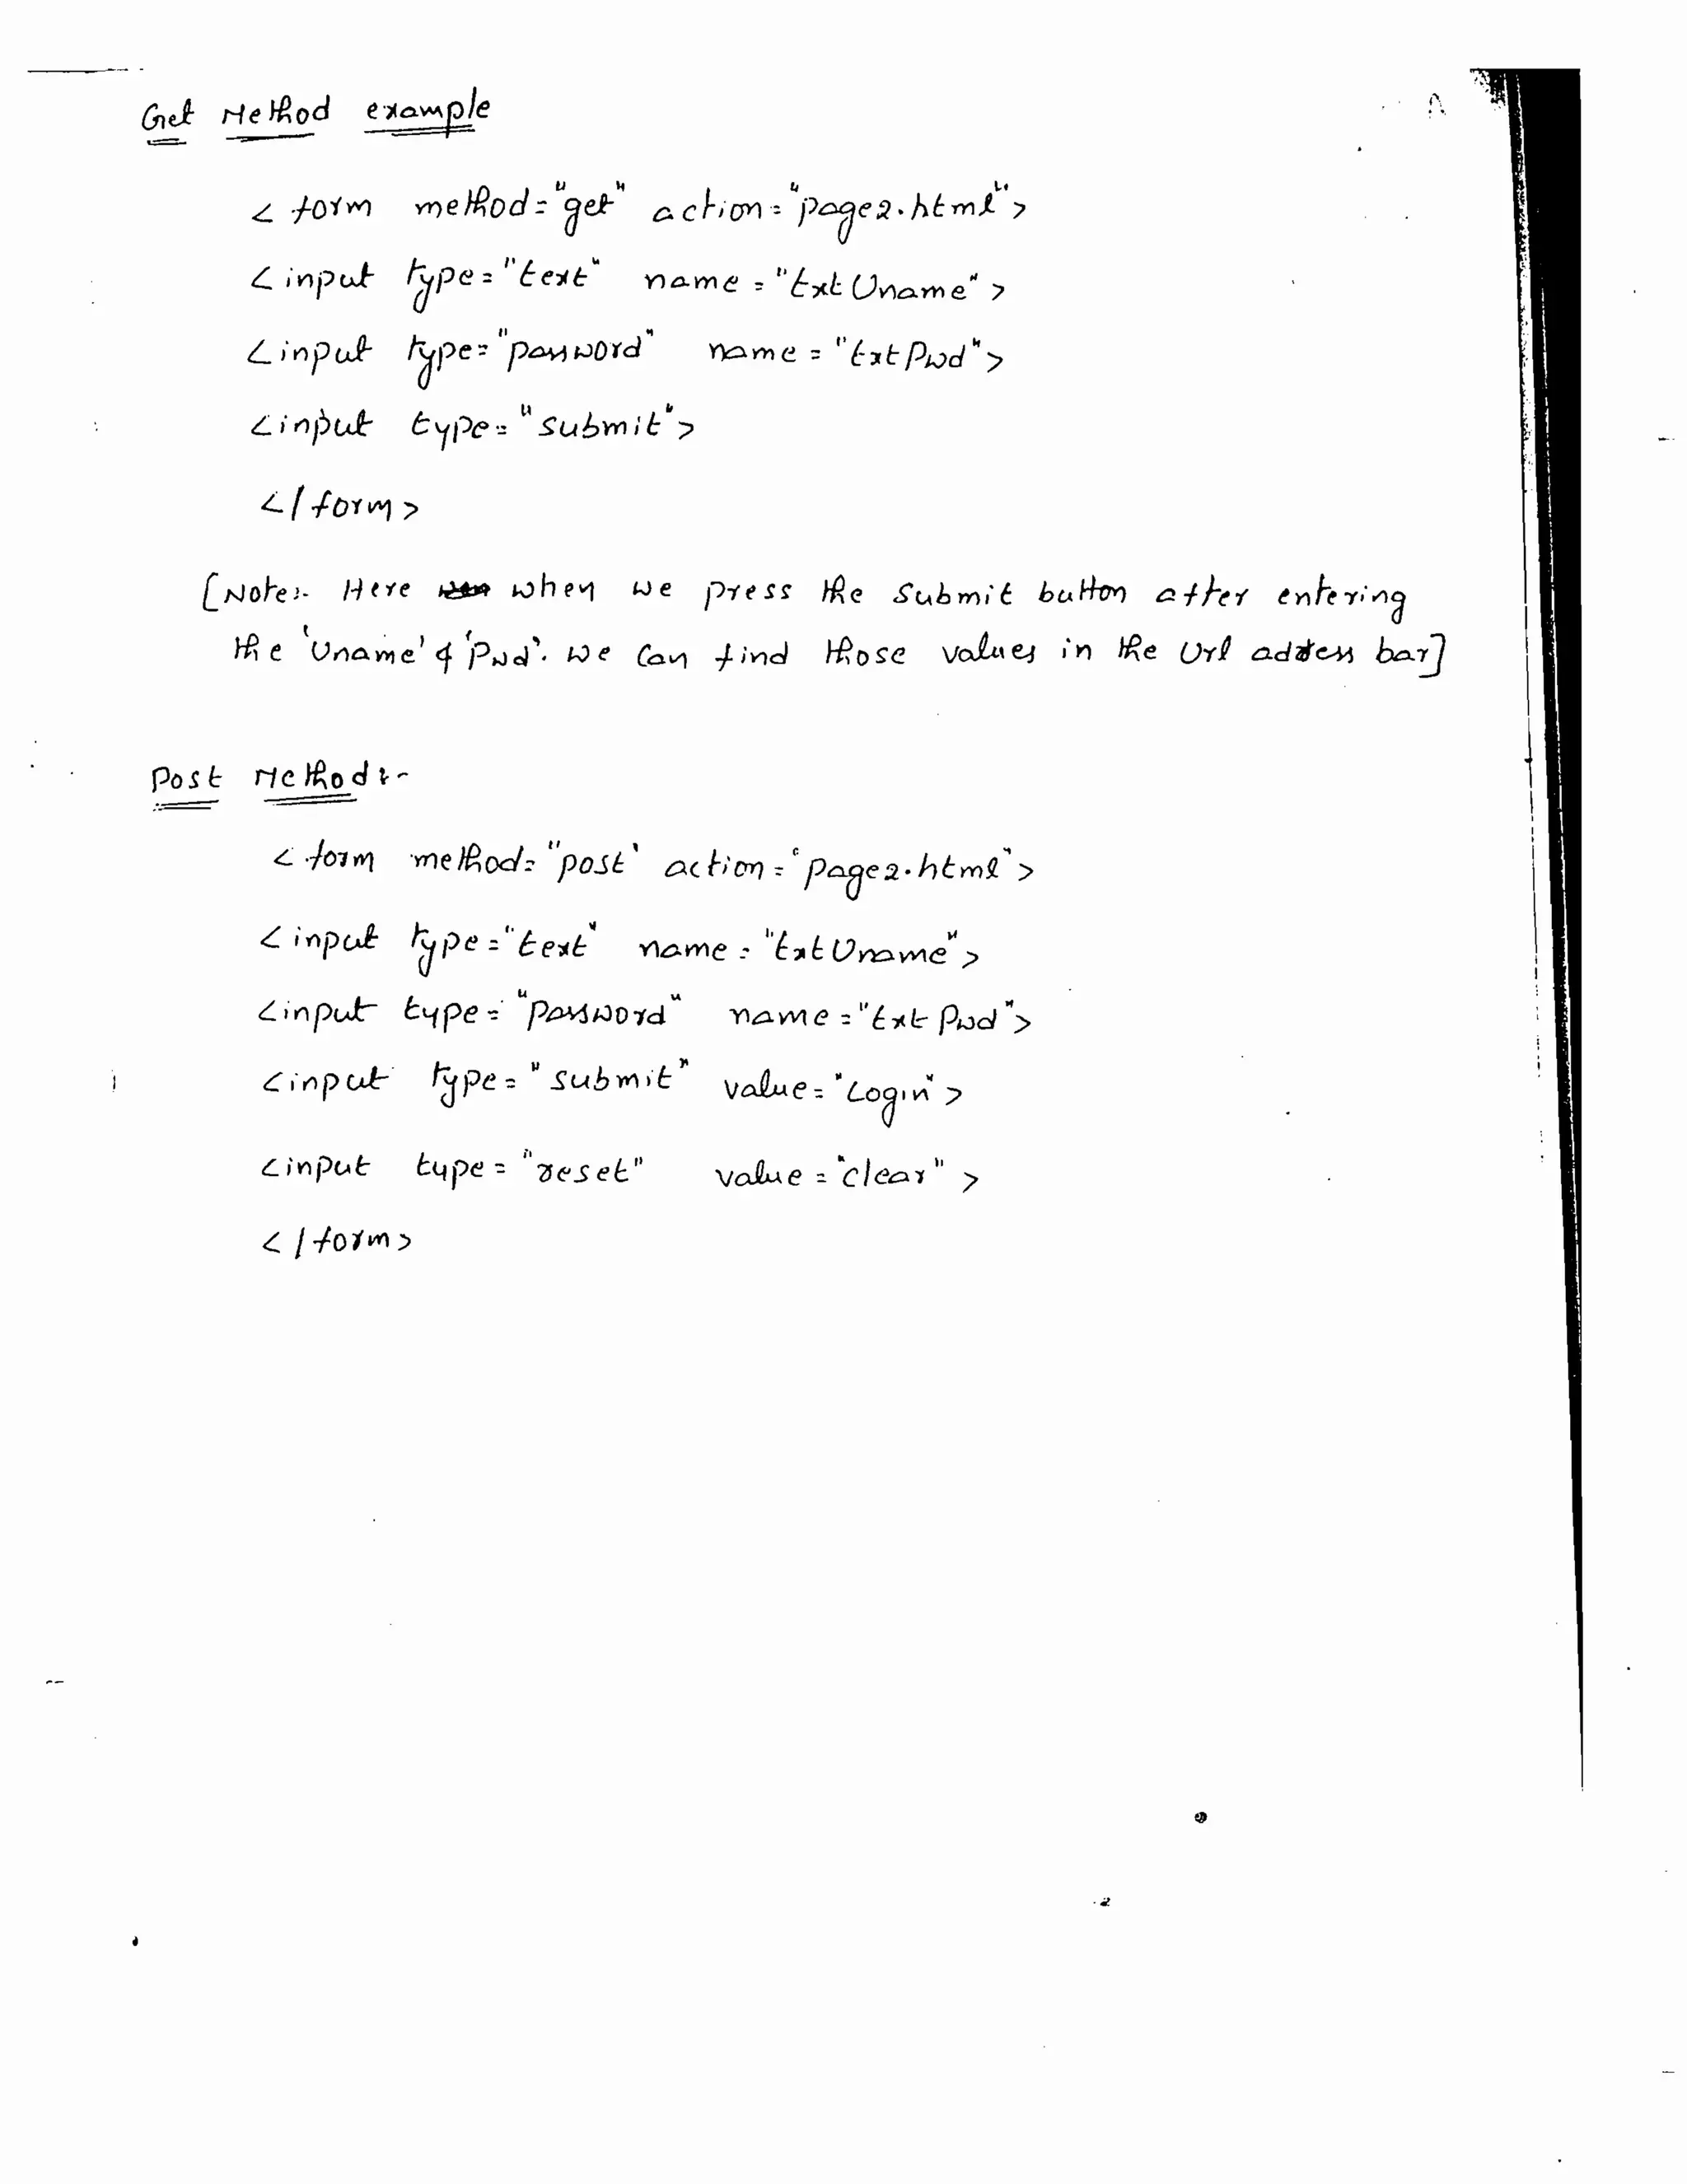 Get Method example
< form method="get" action="page2.html">
<input type="text" name="txtUname">
<input type="password" name="txtPwd">
<input type="submit">
</form>
[Note:- Here when we press the submit button after entering
the 'Uname' & 'Pwd'. we can find those values in the Url address bar]
Post Method:-
< form method="post' action='page2.html">
<input type="text" name="txtUname">
<input type="password" name="txtPwd">
<input type="submit" value="Login">
<input type="reset" value="clear">
</form>